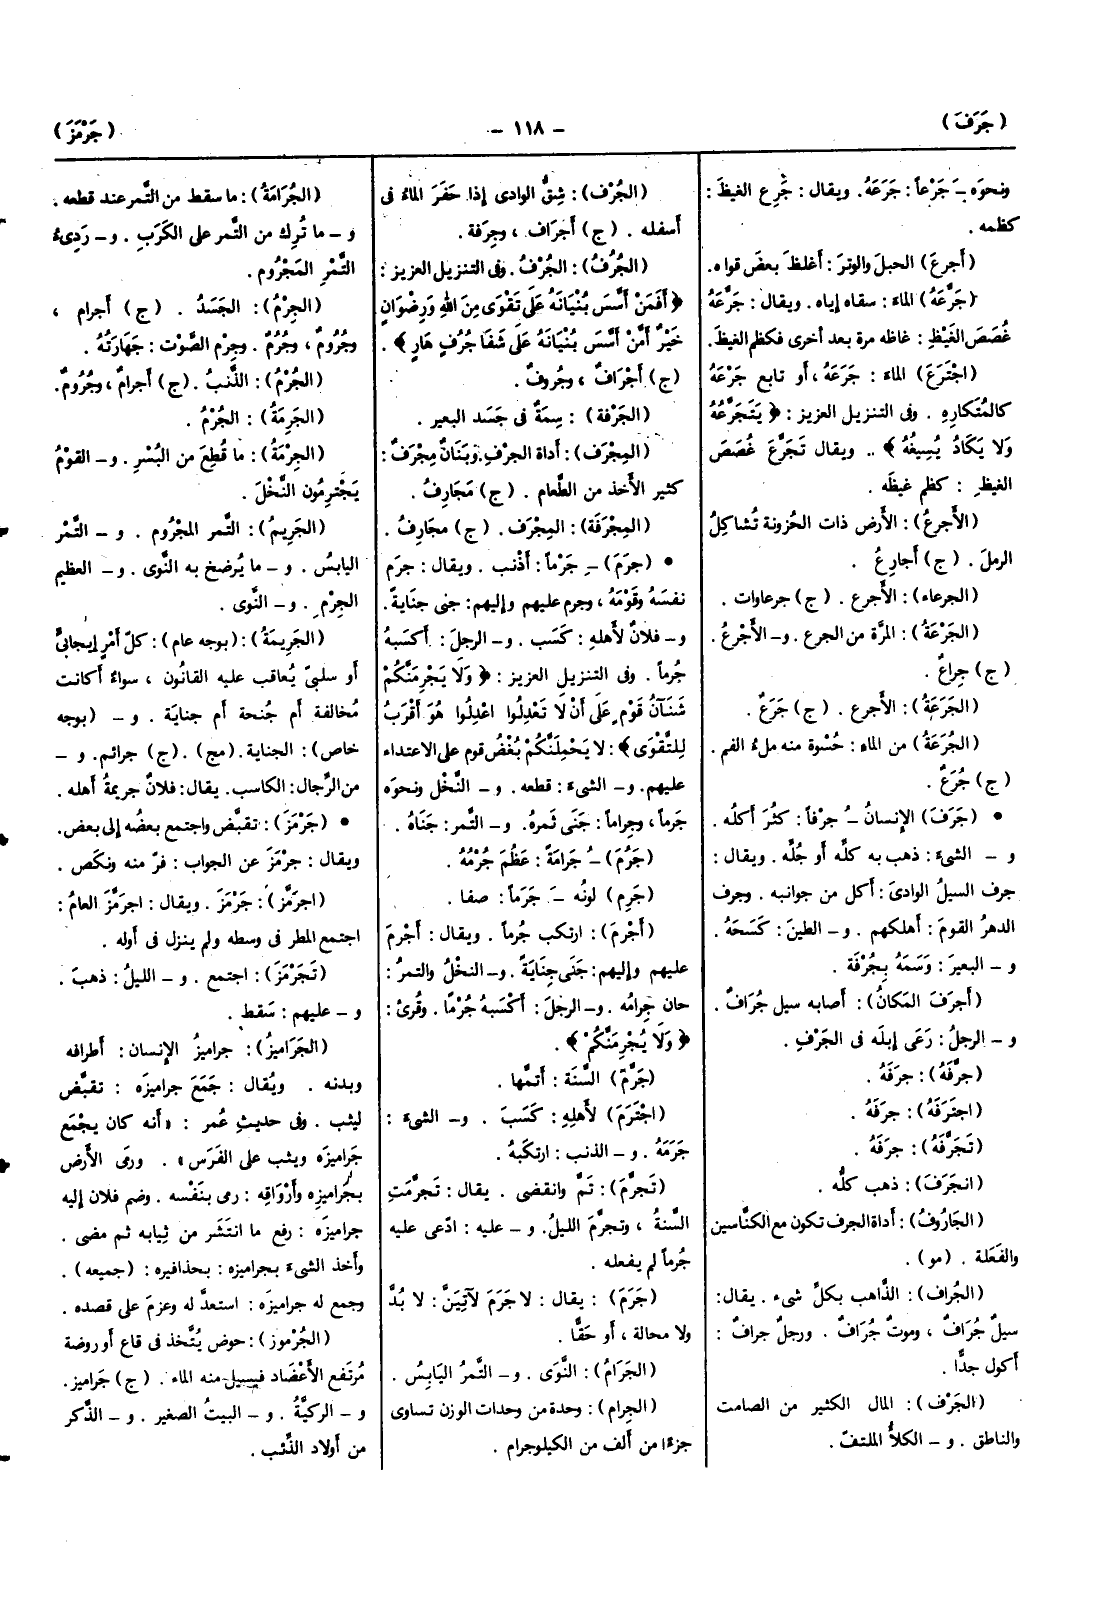 ( جَرَفَ )
— ١١٨ —
( جَرْمَزَ )
ونحوَه ـَ جَرْعاً : جَرَعَهُ . ويقال : جَرِع الغيظَ :
كظمه .
( أَجرعَ ) الحبلَ والوترَ : أغلظَ بعضَ قواه .
( جَرَّعَهُ ) الماءَ : سقاه إياه . ويقال : جَرَّعَهُ
غُصَصَ الغَيْظِ : غاظه مرة بعد أخرى فكظم الغيظَ .
( اجْتَرَعَ ) الماءَ : جَرَعَهُ ، أو تابع جَرْعَهُ
كالمُتكارِهِ . وفى التنزيل العزيز : ﴿ يَتَجَرَّعُهُ
وَلَا يَكَادُ يُسِيغُهُ ﴾ .. ويقال تَجَرَّعَ غُصَصَ
الغيظِ : كظم غيظَه .
( الأَجرعُ ) : الأرض ذات الحُزونة تُشاكِلُ
الرملَ . ( ج ) أَجارِعُ .
( الجرعاء ) : الأَجرع . ( ج ) جرعاوات .
( الجَرْعَةُ ) : المرَّة من الجرع . و – الأَجْرعُ .
( ج ) جِراعٌ .
( الجَرَعَةُ ) : الأَجرع . ( ج ) جَرَعٌ .
( الجُرعَةُ ) من الماء : حُسْوة منه ملءُ الفم .
( ج ) جُرَعٌ .
• ( جَرَفَ ) الإنسانُ ـُ جرْفاً : كثُرَ أكلُه .
و – الشىءَ : ذهب به كلِّه أو جُلِّه . ويقال :
جرف السيلُ الوادىَ : أكل من جوانبه . وجرف
الدهرُ القومَ : أهلكهم . و – الطينَ : كَسَحَهُ .
و – البعيرَ : وَسَمَهُ بِجُرْفَة .
( أَجرَفَ المَكانُ ) : أصابه سيل جُرَافٌ .
و – الرجلُ : رَعَى إبلَه فى الجَرْفِ .
( جرَّفَهُ ) : جرفَهُ .
( اجترَفَهُ ) : جرفَهُ .
( تَجَرَّفَهُ ) : جرفَهُ .
( انجَرَفَ ) : ذهب كلُّه .
( الجَارُوفُ ) : أداة الجرف تكون مع الكنَّاسين
والفَعَلة . ( مو ) .
( الجُراف ) : الذَّاهب بكلِّ شىء . يقال :
سيلٌ جُرَافٌ ، وموتٌ جُرَافٌ . ورجلٌ جرافٌ :
أكول جدًّا .
( الجَرْف ) : المال الكثير من الصامت
والناطق . و – الكلأُ الملتفّ .
( الجُرْف ) : شِقُّ الوادى إذا حَفَرَ الماءُ فى
أسفله . ( ج ) أَجراف ، وجِرفة .
( الجُرُفُ ) : الجُرْفُ . وفى التنزيل العزيز :
﴿ أَفَمَنْ أَسَّسَ بُنْيَانَهُ عَلَى تَقْوَى مِنَ اللهِ وَرِضْوَانٍ
خَيْرٌ أَمَّنْ أَسَّسَ بُنْيَانَهُ عَلَى شَفَا جُرُفٍ هَارٍ ﴾ .
( ج ) أَجْرَافٌ ، وجُروفٌ .
( الجَرْفة ) : سِمَةٌ فى جَسَد البعير .
( المِجْرَف ) : أداة الجرْفِ . وبَنَانٌ مِجْرَفٌ :
كثير الأَخذ من الطَّعام . ( ج ) مَجَارِفُ .
( المِجْرَفَة ) : المِجْرَف . ( ج ) مجَارِفُ .
• ( جرَمَ ) ـِ جَرْماً : أَذْنب . ويقال : جرَم
نفسَهُ وقَوْمَهُ ، وجرم عليهم وإليهم : جنى جنايةً .
و – فلانٌ لأَهلهِ : كَسَب . و – الرجلَ : أَكسَبهُ
جُرماً . وفى التنزيل العزيز : ﴿ وَلَا يَجْرِمَنَّكُمْ
شَنَآنُ قَوْمٍ عَلَى أَنْ لَا تَعْدِلُوا اعْدِلُوا هُوَ أَقْرَبُ
لِلتَّقْوَى ﴾ : لا يَحْمِلَنَّكُمْ بُغْضُ قوم على الاعتداء
عليهم . و – الشىءَ : قطعه . و – النَّخْل ونحوَه
جَرماً ، وجِراماً : جَنَى ثمرهُ . و – التَّمر : جَنَاهُ .
( جَرُمَ ) ـُ جَرامَةً : عَظُمَ جُرْمُهُ .
( جَرِم ) لونُه ـَ جَرَماً : صفا .
( أَجْرَمَ ) : ارتكب جُرماً . ويقال : أَجْرمَ
عليهم وإليهم : جَنَى جِنَايَةً . و – النخْلُ والتمرُ :
حان جِرامُه . و – الرجلَ : أَكْسَبهُ جُرْمًا . وقُرِئَ :
﴿ وَلَا يُجْرِمَنَّكُمْ ﴾ .
( جَرَّمَ ) السَّنَةَ : أَتمَّها .
( اجْتَرَمَ ) لأهلِهِ : كَسَبَ . و – الشىءَ :
جَرَمَهُ . و – الذنبَ : ارتكبَهُ .
( تَجرَّمَ ) : تَمَّ وانقضى . يقال : تَجرَّمَتِ
السَّنةُ ، وتجرَّمَ الليلُ . و – عليه : ادَّعى عليه
جُرماً لم يفعله .
( جَرَمَ ) : يقال : لا جَرَمَ لآتِيَنَّ : لا بُدَّ
ولا محالة ، أو حَقًّا .
( الجَرَامُ ) : النَّوَى . و – التَّمرُ اليَابِسُ .
( الجرام ) : وحدة من وحدات الوزن تساوى
جزءًا من ألف من الكيلوجرام .
( الجُرَامَةُ ) : ما سقط من التَّمر عند قطعه .
و – ما تُرِك من التَّمر على الكَرَبِ . و – رَدِىءُ
التَّمْرِ المَجْرُوم .
( الجِرْمُ ) : الجَسَدُ . ( ج ) أجرام ،
وجُرُومٌ ، وجُرُمٌ . وجِرْم الصَّوْت : جَهَارَتُهُ .
( الجُرْمُ ) : الذَّنبُ . ( ج ) أَجرامٌ ، وجُرُومٌ .
( الجَرِمَةُ ) : الجُرْمُ .
( الجِرْمَةُ ) : ما قُطِعَ من البُسْرِ . و – القوْمُ
يَجْترِمُون النَّخْلَ .
( الجَرِيمُ ) : التَّمر المجْرُوم . و – التَّمْر
اليابسُ . و – ما يُرضخ به النَّوى . و – العظيم
الجِرْمِ . و – النَّوى .
( الجَرِيمَةُ ) : ( بوجه عام ) : كلّ أَمْرٍ إيجابىٍّ
أو سلبىّ يُعاقب عليه القانُون ، سواءٌ أكانت
مُخالفة أم جُنحة أم جناية . و – ( بوجه
خاص ) : الجناية . ( مج ) . ( ج ) جرائم . و –
من الرِّجال : الكاسب . يقال : فلانٌ جريمةُ أهله .
• ( جَرْمَزَ ) : تقبَّض واجتمع بعضُه إلى بعض .
ويقال : جرْمَزَ عن الجواب : فرّ منه ونكَص .
( اجرَمَّز ) : جَرْمَزَ . ويقال : اجرَمَّزَ العامُ :
اجتمع المطر فى وسطه ولم ينزل فى أوله .
( تَجَرْمَزَ ) : اجتمع . و – الليلُ : ذهبَ .
و – عليهم : سَقط .
( الجَرَاميزُ ) : جراميزُ الإنسان : أطرافه
وبدنه . ويُقال : جَمَعَ جراميزَه : تقبَّضَ
ليثب . وفى حديثِ عُمر : « أنه كان يجْمَع
جَراميزَه ويثب على الفَرَس » . ورمَى الأَرضَ
بجَراميزِه وأرْوَاقِه : رمى بنَفْسه . وضم فلان إليه
جراميزَه : رفع ما انتشَر من ثِيابه ثم مضى .
وأَخذ الشىءَ بجراميزه : بحذافيره : ( جميعه ) .
وجمع له جراميزَه : استعدَّ له وعزمَ على قصده .
( الجُرموز ) : حوض يُتَّخذ فى قاع أو روضة
مُرتَفع الأَعْضَاد فيسيل منه الماء . ( ج ) جَراميز .
و – الركيَّةُ . و – البيتُ الصغير . و – الذَّكر
من أولاد الذِّئب .